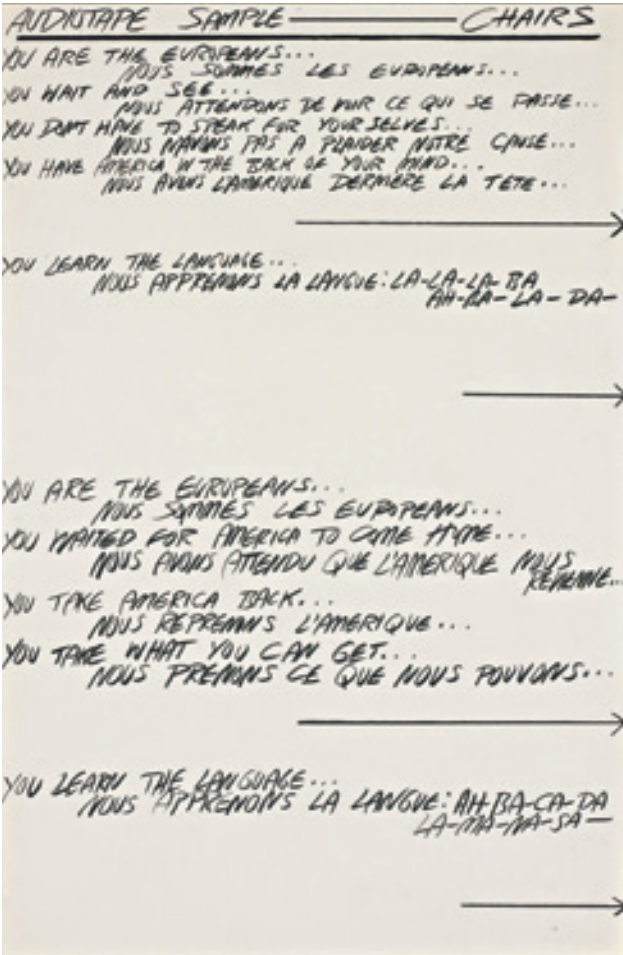 AUDIOTAPE SAMPLE — CHAIRS
YOU ARE THE EUROPEANS...
NOUS SOMMES LES EUROPEANS...
YOU WAIT AND SEE...
NOUS ATTENDONS DE VOIR CE QUI SE PASSE...
YOU DON'T HAVE TO SPEAK FOR YOURSELVES...
NOUS N'AVONS PAS A PLAIDER NOTRE CAUSE...
YOU HAVE AMERICA IN THE BACK OF YOUR MIND...
NOUS AVONS L'AMERIQUE DERRIERE LA TETE...
YOU LEARN THE LANGUAGE...
NOUS APPRENONS LA LANGUE: LA-LA-LA-BA
AH-BA-LA-DA-
YOU ARE THE EUROPEANS...
NOUS SOMMES LES EUROPEANS...
YOU WAITED FOR AMERICA TO COME HOME...
NOUS AVONS ATTENDU QUE L'AMERIQUE NOUS
REVIENNE...
YOU TAKE AMERICA BACK...
NOUS REPRENONS L'AMERIQUE...
YOU TAKE WHAT YOU CAN GET...
NOUS PRENONS CE QUE NOUS POUVONS...
YOU LEARN THE LANGUAGE...
NOUS APPRENONS LA LANGUE: AH-BA-CA-DA
LA-MA-NA-SA—